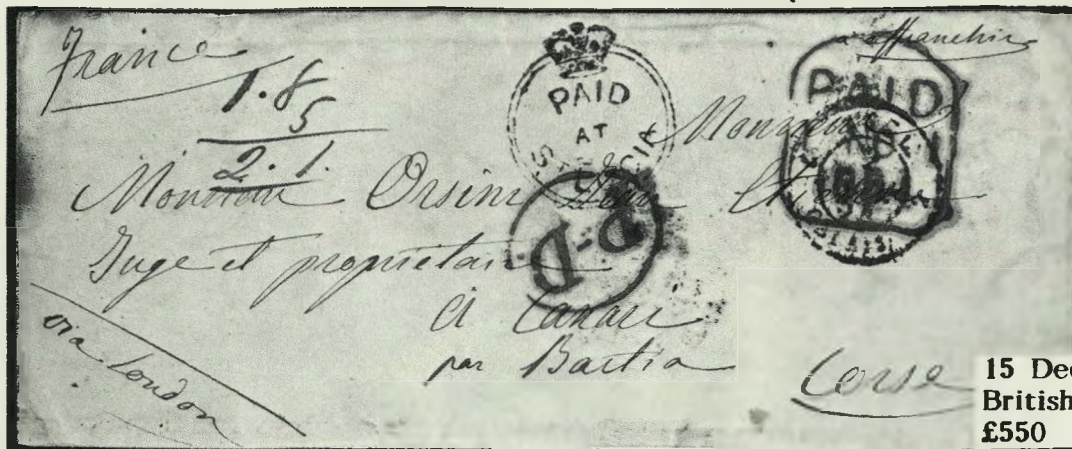 France
à affranchir
1.8
5
2.1.
PAID
AT
ST LUCIA
PAID
P.D.
Monsieur
Monsieur Orsini
Juge et propriétaire
à Canari
par Bastia
Corse
via London
15 Dec
British
£550